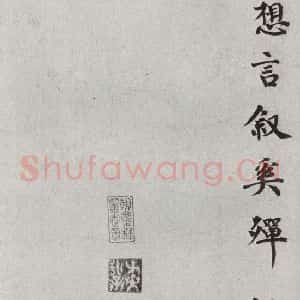 想言叙奚殫
Shufawang.cn